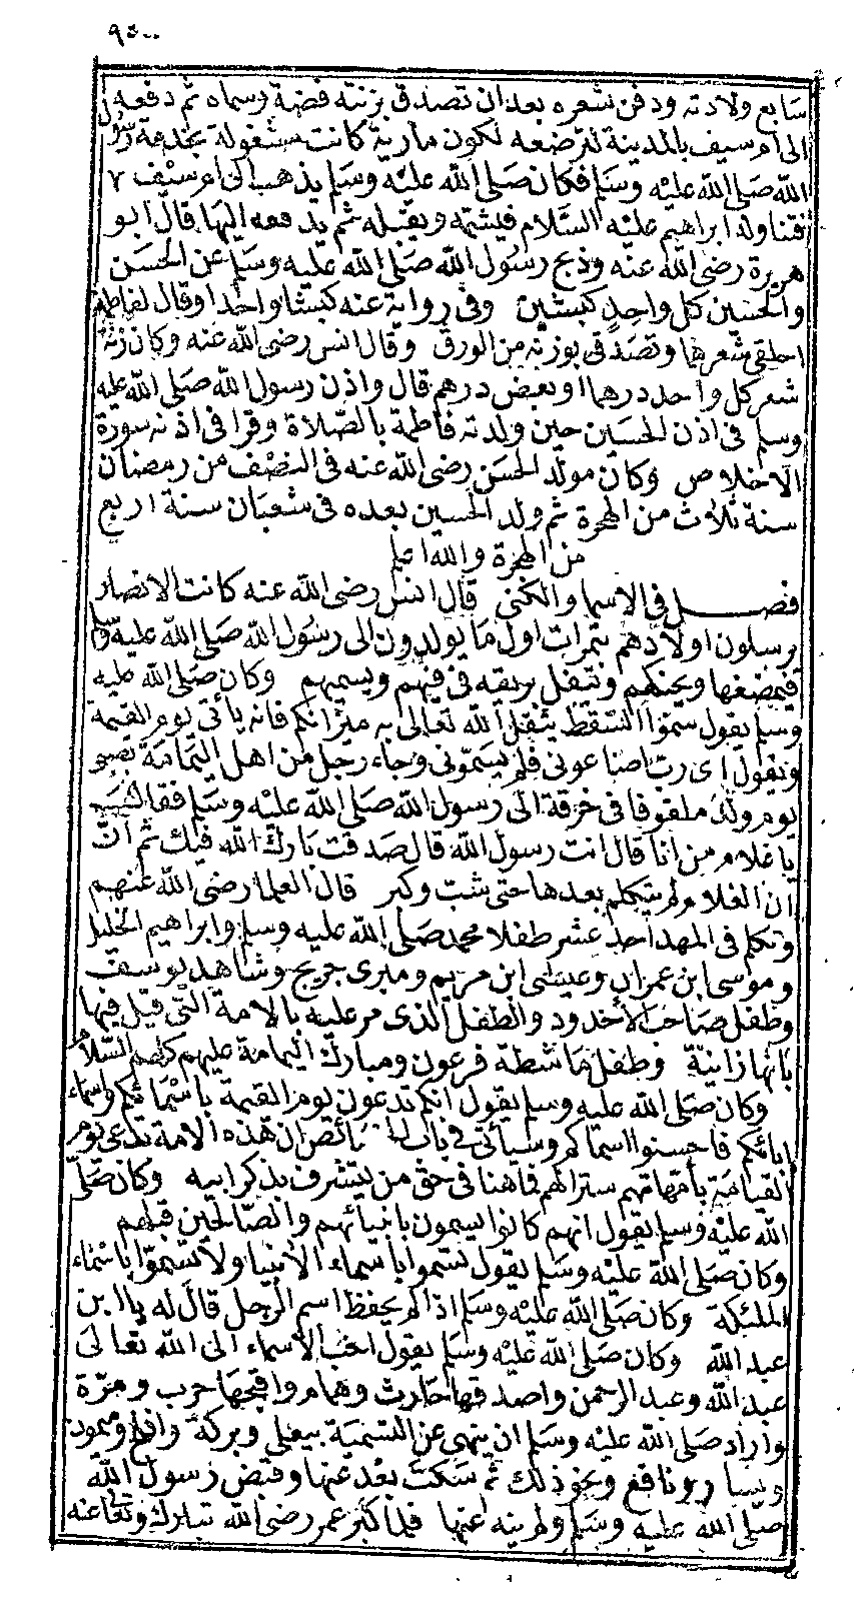 سابع ولادته ودفن شعره بعد ان تصدق بزنته فضة وسماه ثم دفعه
الى ام سيف بالمدينة لترضعه لكون مارية كانت مشغولة بخدمة رسول
الله صلى الله عليه وسلم فكان صلى الله عليه وسلم يذهب الى ام سيف
فتناوله ابراهيم عليه السلام فيشمه ويقبله ثم يدفعه اليها قال ابو
هريرة رضى الله عنه وذبح رسول الله صلى الله عليه وسلم عن الحسن
والحسين كل واحد كبشين وفى رواية عنه كبشا واحدا وقال لفاطمة
احلقى شعرهما وتصدقى بوزنه من الورق وقال انس رضى الله عنه وكان زنة
شعر كل واحد درهما او بعض درهم قال واذن رسول الله صلى الله عليه
وسلم فى اذن الحسين حين ولدته فاطمة بالصلاة وقرا فى اذنه سورة
الاخلاص وكان مولد الحسن رضى الله عنه فى النصف من رمضان
سنة ثلاث من الهجرة ثم ولد الحسين بعده فى شعبان سنة اربع
من الهجرة والله اعلم
فصل فى الاسما والكنى قال انس رضى الله عنه كانت الانصار
يرسلون اولادهم بتمرات اول ما يولدون الى رسول الله صلى الله عليه وسلم
فيمضغها ويحنكهم ويتفل بريقه فى فيهم ويسميهم وكان صلى الله عليه
وسلم يقول سموا السقط يثقل الله تعالى به ميزانكم فانه يأتى يوم القيمة
ويقول اى رب اضاعونى فلم يسمونى وجاء رجل من اهل اليمامة بصبى
يوم ولد ملفوفا فى خرقة الى رسول الله صلى الله عليه وسلم فقال النبى
يا غلام من انا قال انت رسول الله قال صدقت بارك الله فيك ثم ان
ان الغلام لم يتكلم بعدها حتى شب وكبر قال العلما رضى الله عنهم
وتكلم فى المهد احد عشر طفلا محمد صلى الله عليه وسلم وابراهيم الخليل
وموسى ابن عمران وعيسى ابن مريم ومبرى جريج وشاهد يوسف
وطفل صاحب الأخدود والطفل الذى مر عليه بالامة التى قيل فيها
بانها زانية وطفل ماشطة فرعون ومبارك اليمامة عليهم كلهم السلام
وكان صلى الله عليه وسلم يقول انكم تدعون يوم القيمة باسمائكم واسماء
ابائكم فاحسنوا اسماكم وسيأتى فى باب الخصائص ان هذه الامة تدعى يوم
القيامة بأمهاتهم سترا لهم فاهنا فى حق من يتشرف بذكر ابيه وكان صلى
الله عليه وسلم يقول انهم كانوا يسمون بانبيائهم والصالحين قبلهم
وكان صلى الله عليه وسلم يقول تسموا باسماء الأنبيا ولا تسموا باسماء
الملئكة وكان صلى الله عليه وسلم اذا لم يحفظ اسم الرجل قال له يا ابن
عبد الله وكان صلى الله عليه وسلم يقول احب الأسماء الى الله تعالى
عبد الله وعبد الرحمن واصدقها حارث وهمام واقبحها حرب ومرة
واراد صلى الله عليه وسلم ان ينهى عن التسمية بيعلى وبركة وافلح وميمون
ويسار ونافع ونحو ذلك ثم سكت بعد عنها وقبض رسول الله
صلى الله عليه وسلم ولم ينه عنها فلما كبر عمر رضى الله تبارك وتعالى عنه